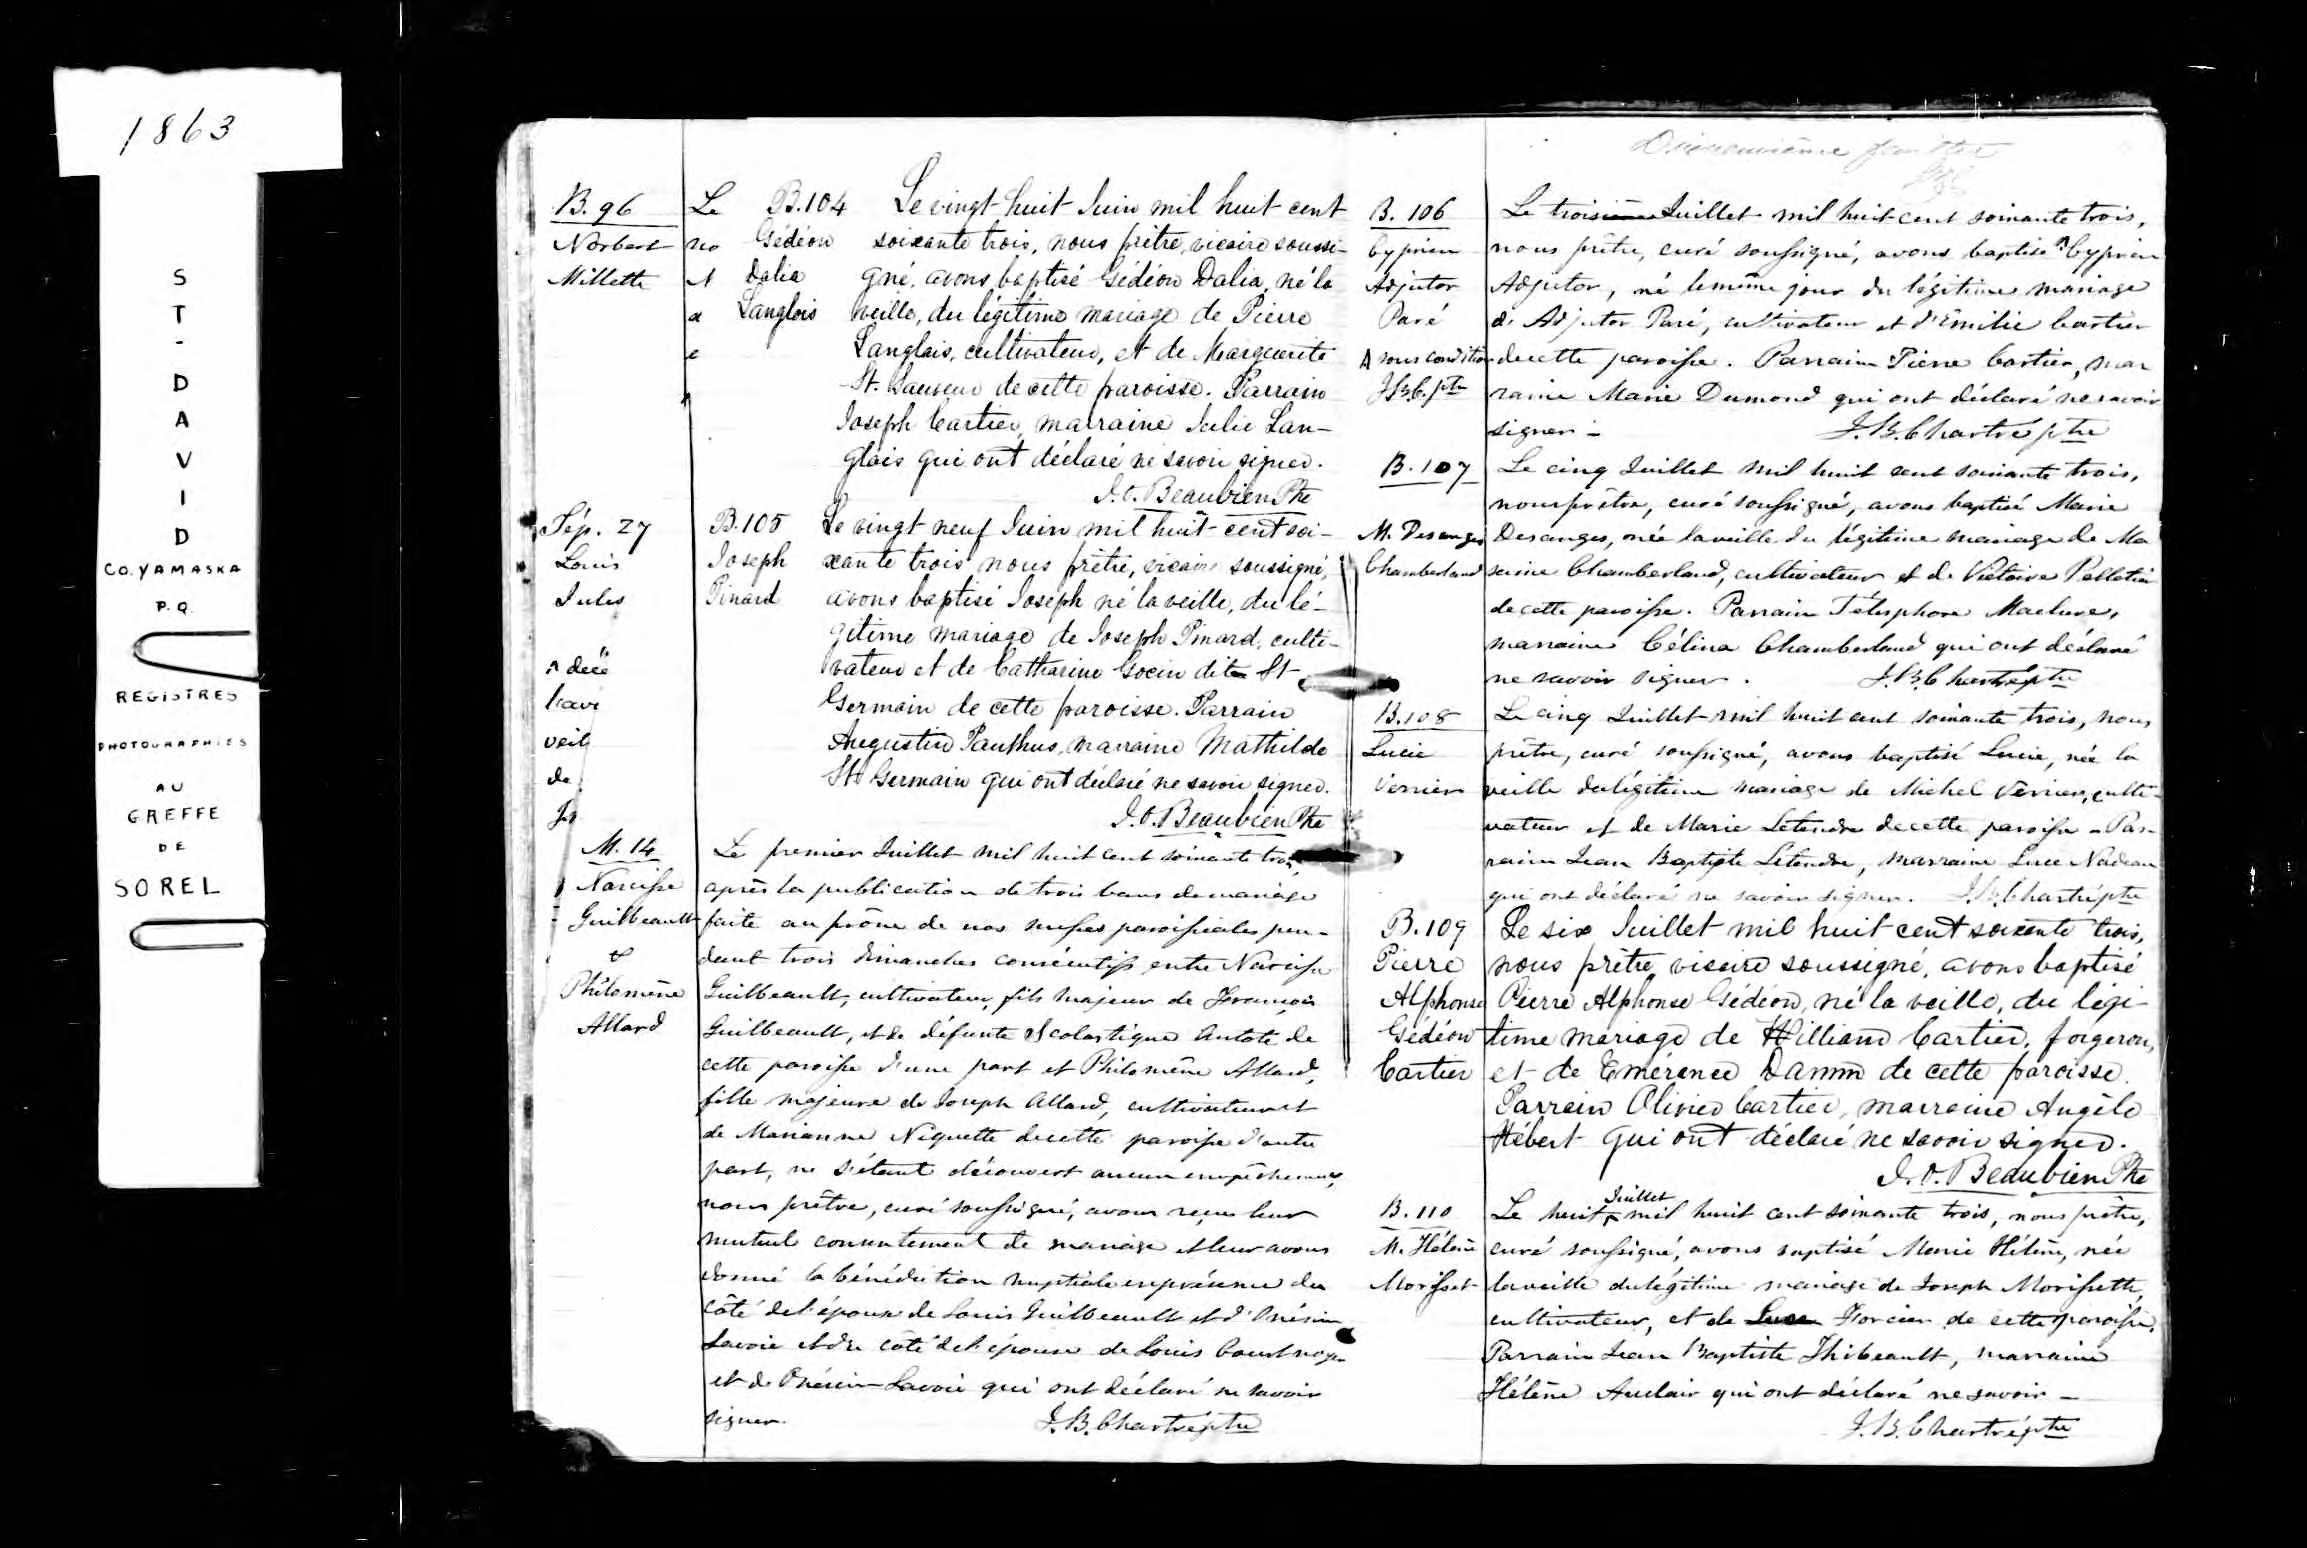 1863
ST-DAVID
CO. YAMASKA
P.Q.
REGISTRES
PHOTOGRAPHIÉS
AU
GREFFE
DE
SOREL
B. 96
Norbert
Millette
Le
no
et
Sép. 27
Louis
Jules
veil
de
B.104
Gédéon
Dalia
Langlois
Le vingt huit Juin mil huit cent
soixante trois, nous prêtre, vicaire soussi-
gné, avons baptisé Gédéon Dalia, né la
veille, du légitime mariage de Pierre
Langlais, cultivateur, et de Marguerite
St. Sauveur de cette paroisse. Parrain
Joseph Cartier, marraine Julie Lan-
glais qui ont déclaré ne savoir signer.
J.O. Beaubien Ptre
B.105
Joseph
Pinard
Le vingt neuf Juin mil huit cent soi-
xante trois nous prêtre, vicaire soussigné,
avons baptisé Joseph né la veille, du lé-
gitime mariage de Joseph Pinard, culti-
vateur et de Catharine Gocin dite St-
Germain de cette paroisse. Parrain
Augustin Paulhus, marraine Mathilde
St Germain qui ont déclaré ne savoir signer.
J.O. Beaubien Ptre
M. 14
Narcisse
Guilbeault
&
Philomène
Allard
Le premier Juillet mil huit cent soixante trois,
après la publication de trois bans de mariage
faite au prône de nos messes paroissiales pen-
dant trois dimanches consécutifs entre Narcisse
Guilbeault, cultivateur, fils majeur de François
Guilbeault, et de défunte Scolastique Antote de
cette paroisse d'une part et Philomène Allard,
fille majeure de Joseph Allard, cultivateur et
de Marianne Niquette de cette paroisse d'autre
part, ne s'étant découvert aucun empêchement,
nous prêtre, curé soussigné, avons reçu leur
mutuel consentement de mariage et leur avons
donné la bénédiction nuptiale en présence du
côté de l'époux de Louis Guilbeault et d'Onésim
Lavoie et du côté de l'épouse de Louis
et de Onésim Lavoie qui ont déclaré ne savoir
signer. J.B. Chartré ptre
Dixneuvième feuillet
B. 106
Cyprien
Adjutor
Paré
sous condition
J.B.C. ptre
Le trois Juillet mil huit cent soixante trois,
nous prêtre, curé soussigné, avons baptisé Cyprien
Adjutor, né le même jour du légitime mariage
de Adjutor Paré, cultivateur et d'Émilie Cartier
de cette paroisse. Parrain Pierre Cartier, mar
raine Marie Dumond qui ont déclaré ne savoir
signer - J.B. Chartré ptre
B. 107
M. Desanges
Chamberland
Le cinq Juillet mil huit cent soixante trois,
nous prêtre, curé soussigné, avons baptisé Marie
Desanges, née la veille du légitime mariage de Ma
xime Chamberland, cultivateur et de Victoire Pelletier
de cette paroisse. Parrain Télesphore Maclure,
marraine Célina Chamberland qui ont déclaré
ne savoir signer. J.B. Chartré ptre
B. 108
Lucie
Verrier
Le cinq Juillet mil huit cent soixante trois, nous
prêtre, curé soussigné, avons baptisé Lucie, née la
veille du légitime mariage de Michel Verrier, culti-
vateur et de Marie Letendre de cette paroisse - Par-
rain Jean Baptiste Letendre, marraine Luce Nadeau
qui ont déclaré ne savoir signer. J.B. Chartré ptre
B. 109
Pierre
Alphonse
Gédéon
Cartier
Le six Juillet mil huit cent soixante trois,
nous prêtre, vicaire soussigné, avons baptisé
Pierre Alphonse Gédéon, né la veille, du légi-
time mariage de William Cartier, forgeron,
et de Emérence de cette paroisse.
Parrain Olivier Cartier, marraine Angèle
Hébert qui ont déclaré ne savoir signer.
J.O. Beaubien Ptre
B. 110
M. Hélène
Morisset
Le huit Juillet mil huit cent soixante trois, nous prêtre,
curé soussigné, avons baptisé Marie Hélène, née
la veille du légitime mariage de Joseph Morissette,
cultivateur, et de Luce Forcier de cette paroisse.
Parrain Jean Baptiste Thibeault, marraine
Hélène Auclair qui ont déclaré ne savoir -
J.B. Chartré ptre